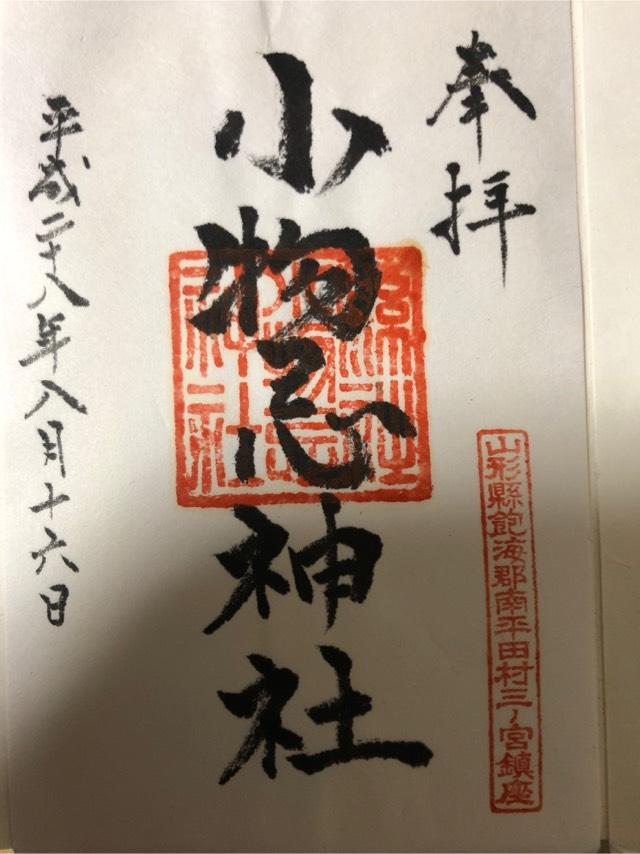 奉拝
山形縣飽海郡南平田村三ノ宮鎮座
小物忌神社
平成二十八年八月十六日